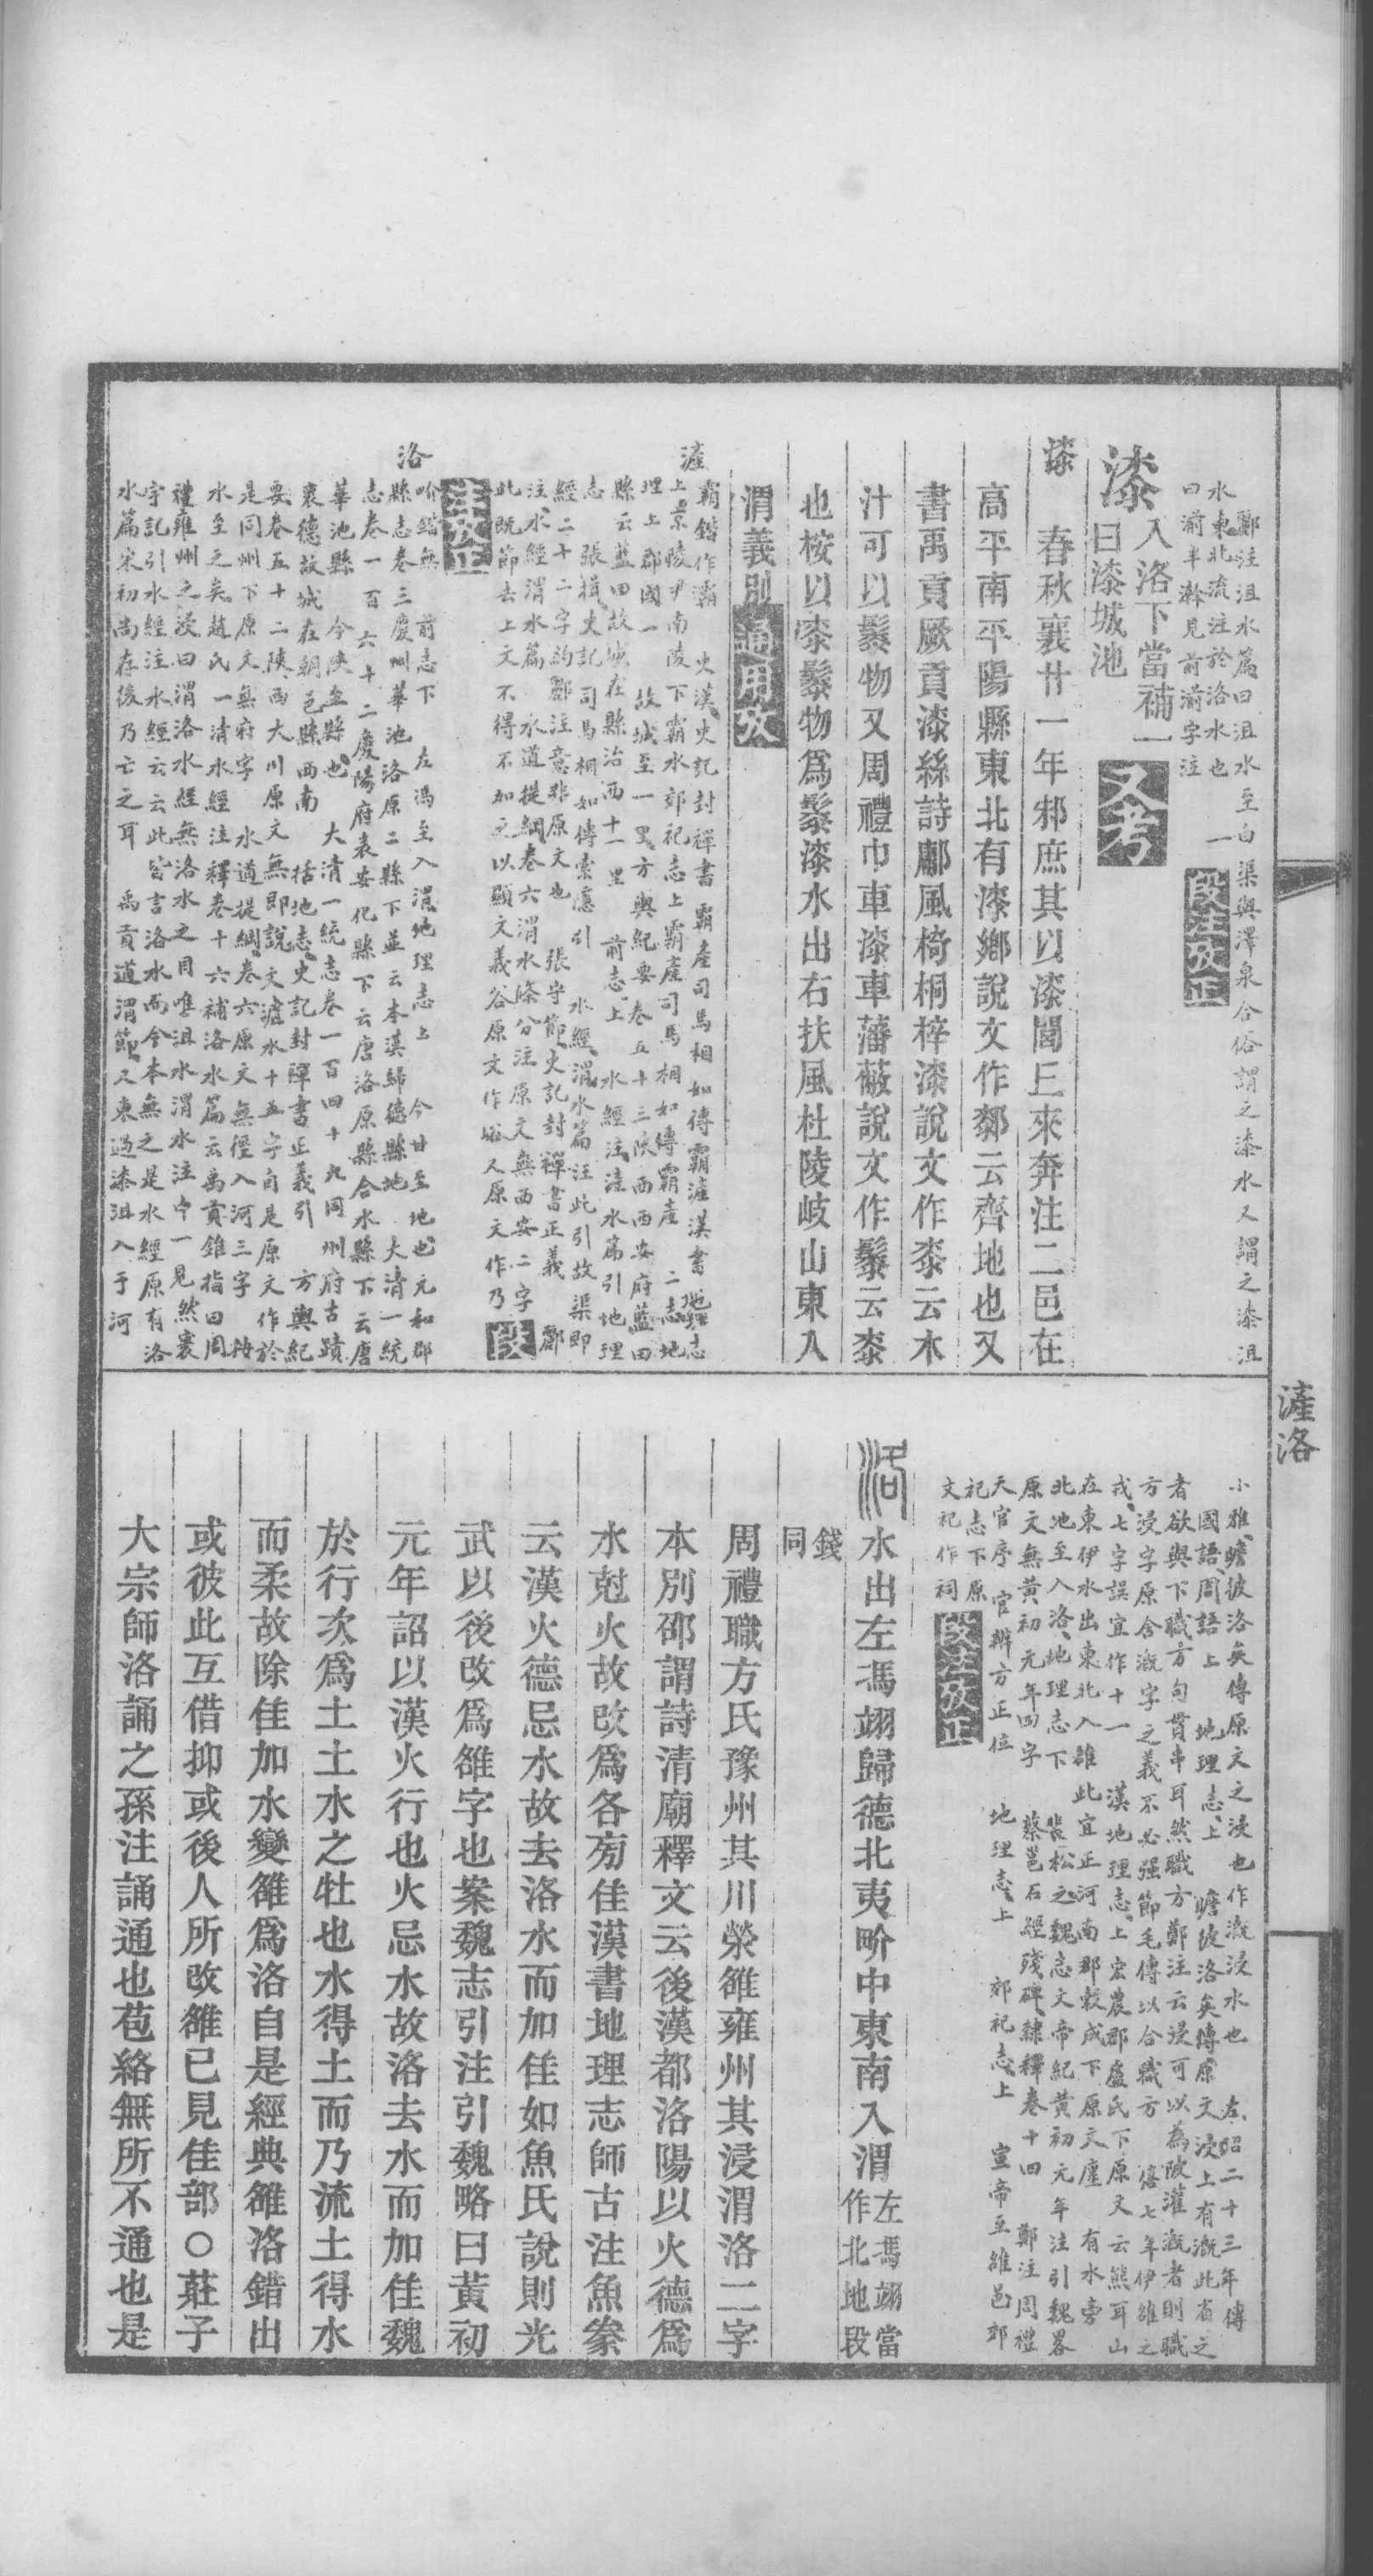 酈注沮水篇曰沮水至白渠與澤泉合俗謂之漆水又謂之漆沮
水東北流注於洛水也
曰前半瀚見前漪字注 一 段注攷正
漆 入洛下當補一
曰漆城池 又考
漆 春秋襄廿一年邾庶其以漆閭丘來奔注二邑在
高平南平陽縣東北有漆鄉說文作䣛云齊地也又
書禹貢厥貢漆絲詩鄘風椅桐梓漆說文作桼云木
汁可以䰍物又周禮巾車漆車藩蔽說文作䰍云桼
也桉以桼䰍物爲䰍漆水出右扶風杜陵岐山東入
渭義別 通用攷
滻 霸鍇作霸 史漢史記封禪書霸產司馬相如傳霸滻漢書地理志
上京陵尹南陵下霸水郊祀志上霸產司馬相如傳霸產 二志地
理上郡國一 故城至一里方輿紀要卷五十三陝西西安府藍田
縣云藍田故城在縣治西十一里 前志上 水經注滻水篇引地理
志 張揖史記司馬相如傳索隱引 水經渭水篇注此引故渠即
經二十二字約酈注意非原文也 張守節史記封禪書正義 酈
注水經渭水篇 水道提綱卷六渭水條分注原文無西安二字
此既節去上文不得不加之以顯文義谷原文作峪又原文作乃 段
注攷正
洛 畍鍇無 前志下 左馮至入渭地理志上 今甘至地也元和郡
縣志卷三慶州華池洛原二縣下並云本漢歸德縣地大清一統
志卷一百六十二慶陽府表安化縣下云唐洛原縣合水縣下云唐
華池縣 今陝至縣也 大清一統志卷一百四十九同州府古蹟
褱德故城在朝邑縣西南 括地志史記封禪書正義引 方輿紀
要卷五十二陝西大川原文無即說文滮水十五字自是原文作於
是同州下原文無府字 水道提綱卷六原文無徑入河三字 桉
水至之矣趙氏一清水經注釋卷十六補洛水篇云禹貢錐指曰周
禮雍州之浸曰渭洛水經無洛水之目唯沮水渭水注中一見然寰
宇記引水經注水經云云此皆言洛水而今本無之是水經原有洛
水篇宋初尚存後乃亡之耳 禹貢道渭節又東過漆沮入于河
滻洛
小雅瞻彼洛矣傳原文之浸也作溉浸水也 左昭二十三年傳
國語周語上 地理志上 瞻彼洛矣傳原文浸上有溉此省之
者欲與下職方句貫串耳然職方鄭注云浸可以為陂灌溉者則職
方浸字原含溉字之義不必强節毛傳以合職方 僖七年伊雒之
戎七字誤宜作十一 漢地理志上宏農郡盧氏下原文云熊耳山
在東伊水出東北入雒此宜正河南郡穀成下原文瀍 有水旁
北地至入洛地理志下 裴松之魏志文帝紀黃初元年注引魏畧
原文無黃初元年四字 蔡邕石經殘碑隸釋卷十四 鄭注周禮
天官序官辨方正位 地理志上 郊祀志上 宣帝至雒邑郊
祀志下原
文祀作祠 段注攷正
洛 水出左馮翊歸德北夷畍中東南入渭 左馮翊當
作北地段
錢
同
周禮職方氏豫州其川滎雒雍州其浸渭洛二字
本別邵謂詩清廟釋文云後漢都洛陽以火德爲
水尅火故改爲各旁隹漢書地理志師古注魚豢
云漢火德忌水故去洛水而加隹如魚氏說則光
武以後改爲雒字也案魏志引注引魏略曰黃初
元年詔以漢火行也火忌水故洛去水而加隹魏
於行次爲土土水之牡也水得土而乃流土得水
而柔故除隹加水變雒爲洛自是經典雒洛錯出
或彼此互借抑或後人所改雒已見隹部○莊子
大宗師洛誦之孫注誦通也苞絡無所不通也是